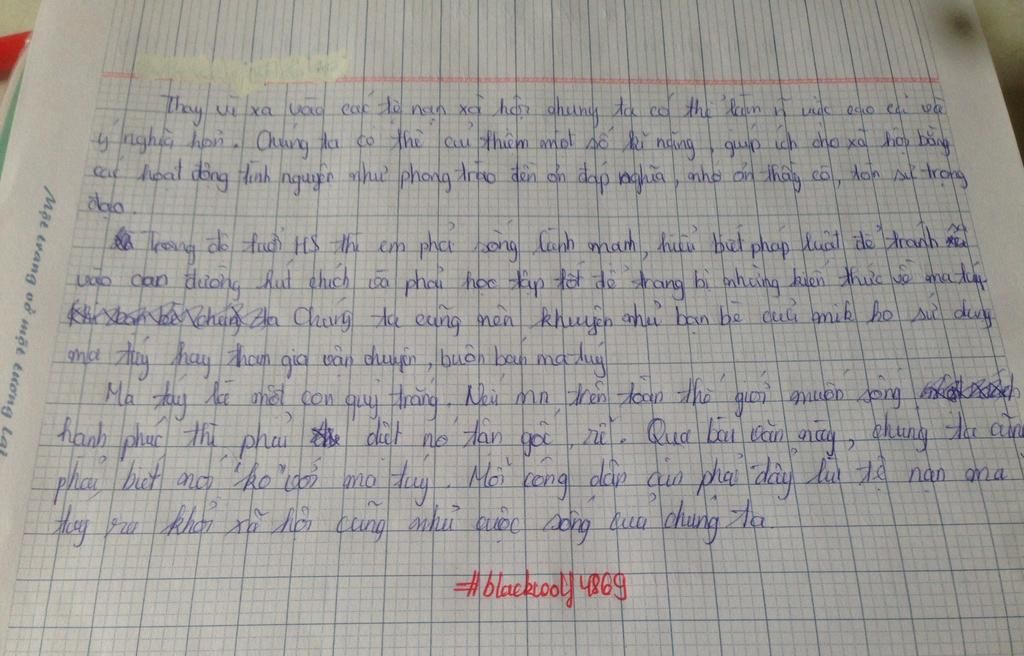 Thay vì xa vào các tệ nạn xã hội chúng ta có thể làm n việc cao cả và
ý nghĩa hơn. Chúng ta có thể thêm một số kĩ năng, giúp ích cho xã hội bằng
các hoạt động tình nguyện như phong trào đền ơn đáp nghĩa, nhớ ơn thầy cô, tôn sư trọng
đạo.
Trong độ tuổi HS thì em phải sống lành mạnh, hiểu biết pháp luật để tránh
vào con đường hút chích và phải học tập tốt để trang bị những kiến thức về ma túy
ta Chúng ta cũng nên khuyên nhủ bạn bè của mik ko sử dụng
ma túy hay tham gia vận chuyện, buôn bán ma túy
Ma túy là một con quỷ trắng. Nếu mn trên toàn thế giới muốn sống
hạnh phúc thì phải diệt nó tận gốc, rễ. Qua bài văn này, chúng ta cần
phải biết nói "ko" với ma túy. Mỗi công dân cần phải đẩy lùi tệ nạn ma
túy ra khỏi xã hội cũng như cuộc sống của chúng ta.
#blackcoolJ4869
Một trang vở một tương lai